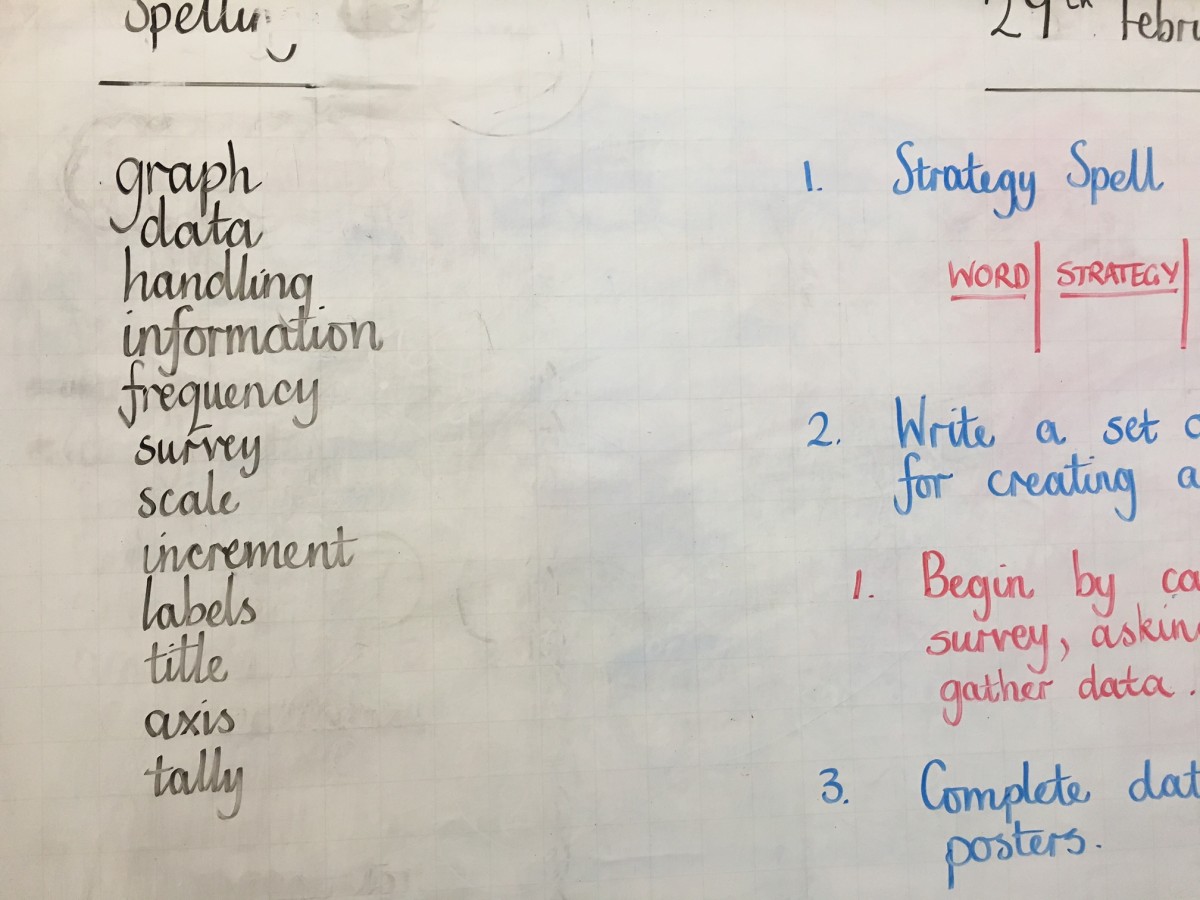 Spelling
graph
data
handling
information
frequency
survey
scale
increment
labels
title
axis
tally
29th Febru
1. Strategy Spell
WORD STRATEGY
2. Write a set
for creating a
1. Begin by ca
survey, askin
gather data.
3. Complete dat
posters.